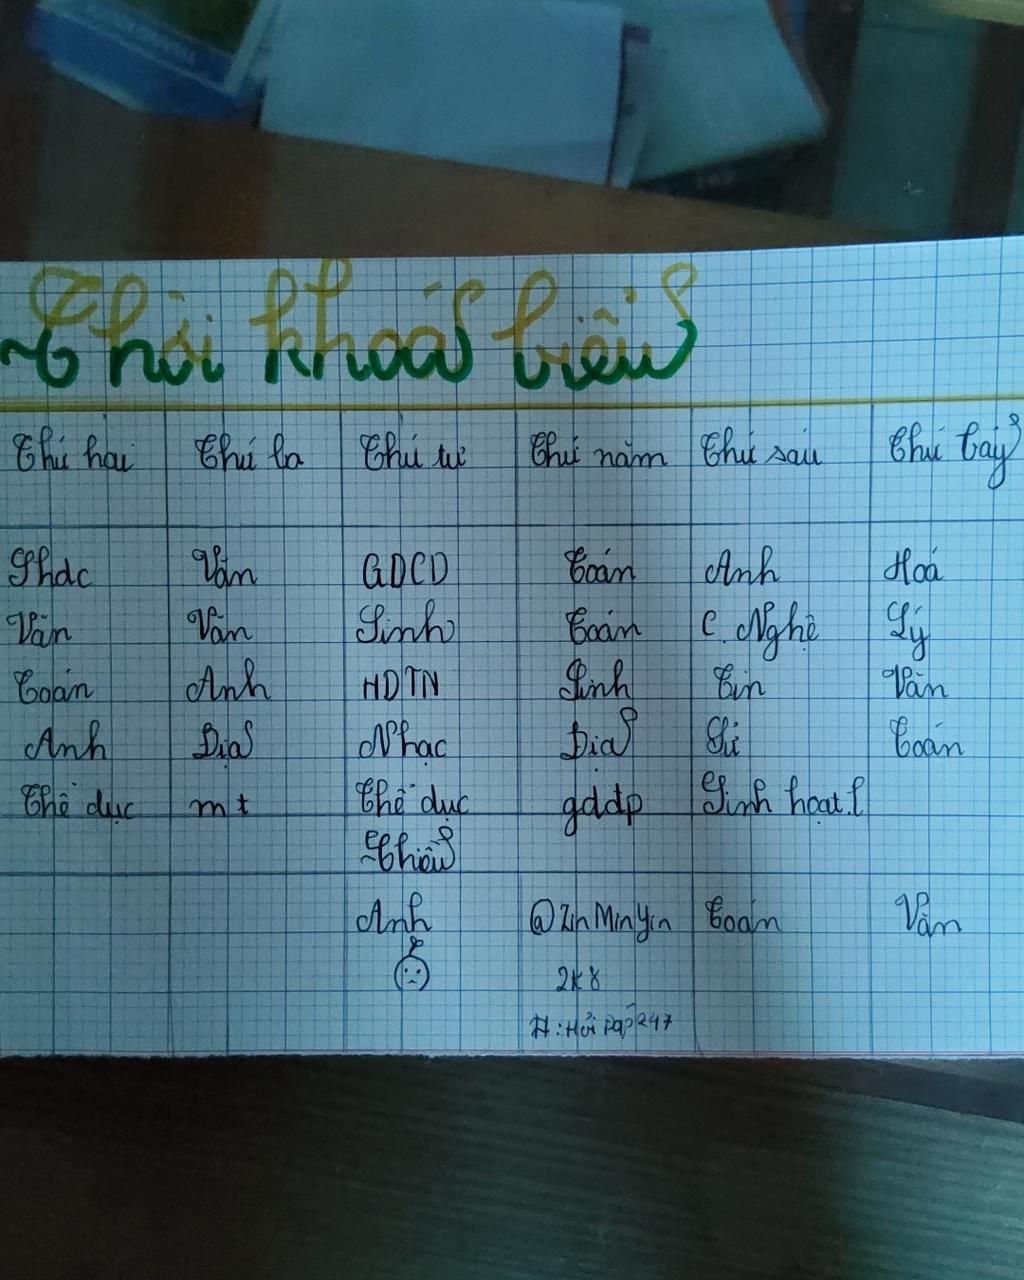 Thời khoá biểu
Thứ hai Thứ ba Thứ tư Thứ năm Thứ sáu Thứ bảy
Shdc Văn GDCD Toán Anh Hoá
Văn Văn Sinh Toán C. Nghệ Lý
Toán Anh HDTN Sinh Tin Văn
Anh Địa Nhạc Địa Sử Toán
Thể dục mt Thể dục gddp Sinh hoạt.l
Chiều
Anh @ZinMinYin Toán Văn
2k8
#:Hỏi Đáp247